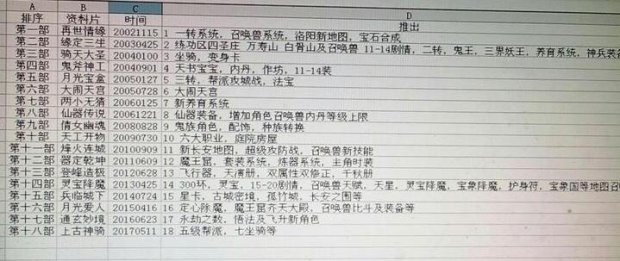 A B C D
排序 资料片 时间 推出
第一部 再世情缘 20021115 1 一转系统，召唤兽系统，洛阳新地图，宝石合成
第二部 缘定三生 20030425 2 练功区四圣庄 万寿山 白骨山及召唤兽 11-14剧情，二转，鬼王，三界妖王，养育系统，神兵装备
第三部 骑天大圣 20040103 3 坐骑，变身卡
第四部 鬼斧神工 20040901 4 天书宝宝，内丹，作坊，11-14装
第五部 月光宝盒 20050127 5 三转，帮派攻城战，法宝
第六部 大闹天宫 20050728 6 大闹天宫
第七部 两小无猜 20060125 7 新养育系统
第八部 仙器传说 20061221 8 仙器装备，增加角色召唤兽内丹等级上限
第九部 倩女幽魂 20080828 9 鬼族角色，配饰，种族转换
第十部 天工开物 20090730 10 六大职业，庭院房屋
第十一部 烽火连城 20100909 11 新长安地图，超级攻防战，召唤兽新技能
第十二部 器定乾坤 20110609 12 魔王窟，套装系统，炼器系统，主角时装
第十三部 登峰造极 20120628 13 飞行器，天演册，双属性双修正，千秋册
第十四部 灵宝降魔 20130425 14 300环，灵宝，15-20剧情，召唤兽天赋，天星，灵宝降魔，宝象降魔，护身符，宝象国等地图召
第十五部 兵临城下 20140724 15 星卡，古城密境，孤竹城，长安之围等
第十六部 月光爱人 20150416 16 定心除魔，魔王窟齐天大殿，召唤兽比斗及装备等
第十七部 通玄妙境 20160623 17 永劫之数，悟法及飞升新角色
第十八部 上古神骑 20170511 18 五级帮派，七坐骑等